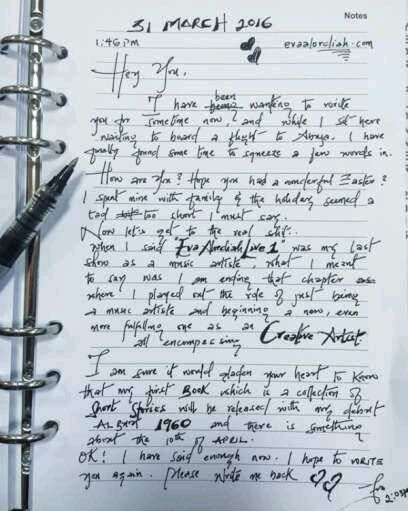 31 MARCH 2016
Notes
1:46PM
evaalordiah.com
Hey You,
I have been wanting to write
you for sometime now, and while I sit here
waiting to board a flight to Abuja, I have
finally found some time to squeeze a few words in.
How are you? Hope you had a wonderful Easter?
I spent mine with family & the holiday seemed a
tad too short I must say.
Now let's get to the real shit..
When I said "Eva Alordiah Live 1" was my last
show as a music artiste, what I meant
to say was I am ending that chapter
where I played out the role of just being
a music artiste and beginning a new, even
more fulfilling one as an
all encompassing Creative Artist.
I am sure it would gladen your heart to know
that my first Book which is a collection of
Short Stories will be released with my debut
ALBUM 1960 and there is something
about the 10th of APRIL.
OK! I have said enough now. I hope to WRITE
you again. Please write me back
2:03pm